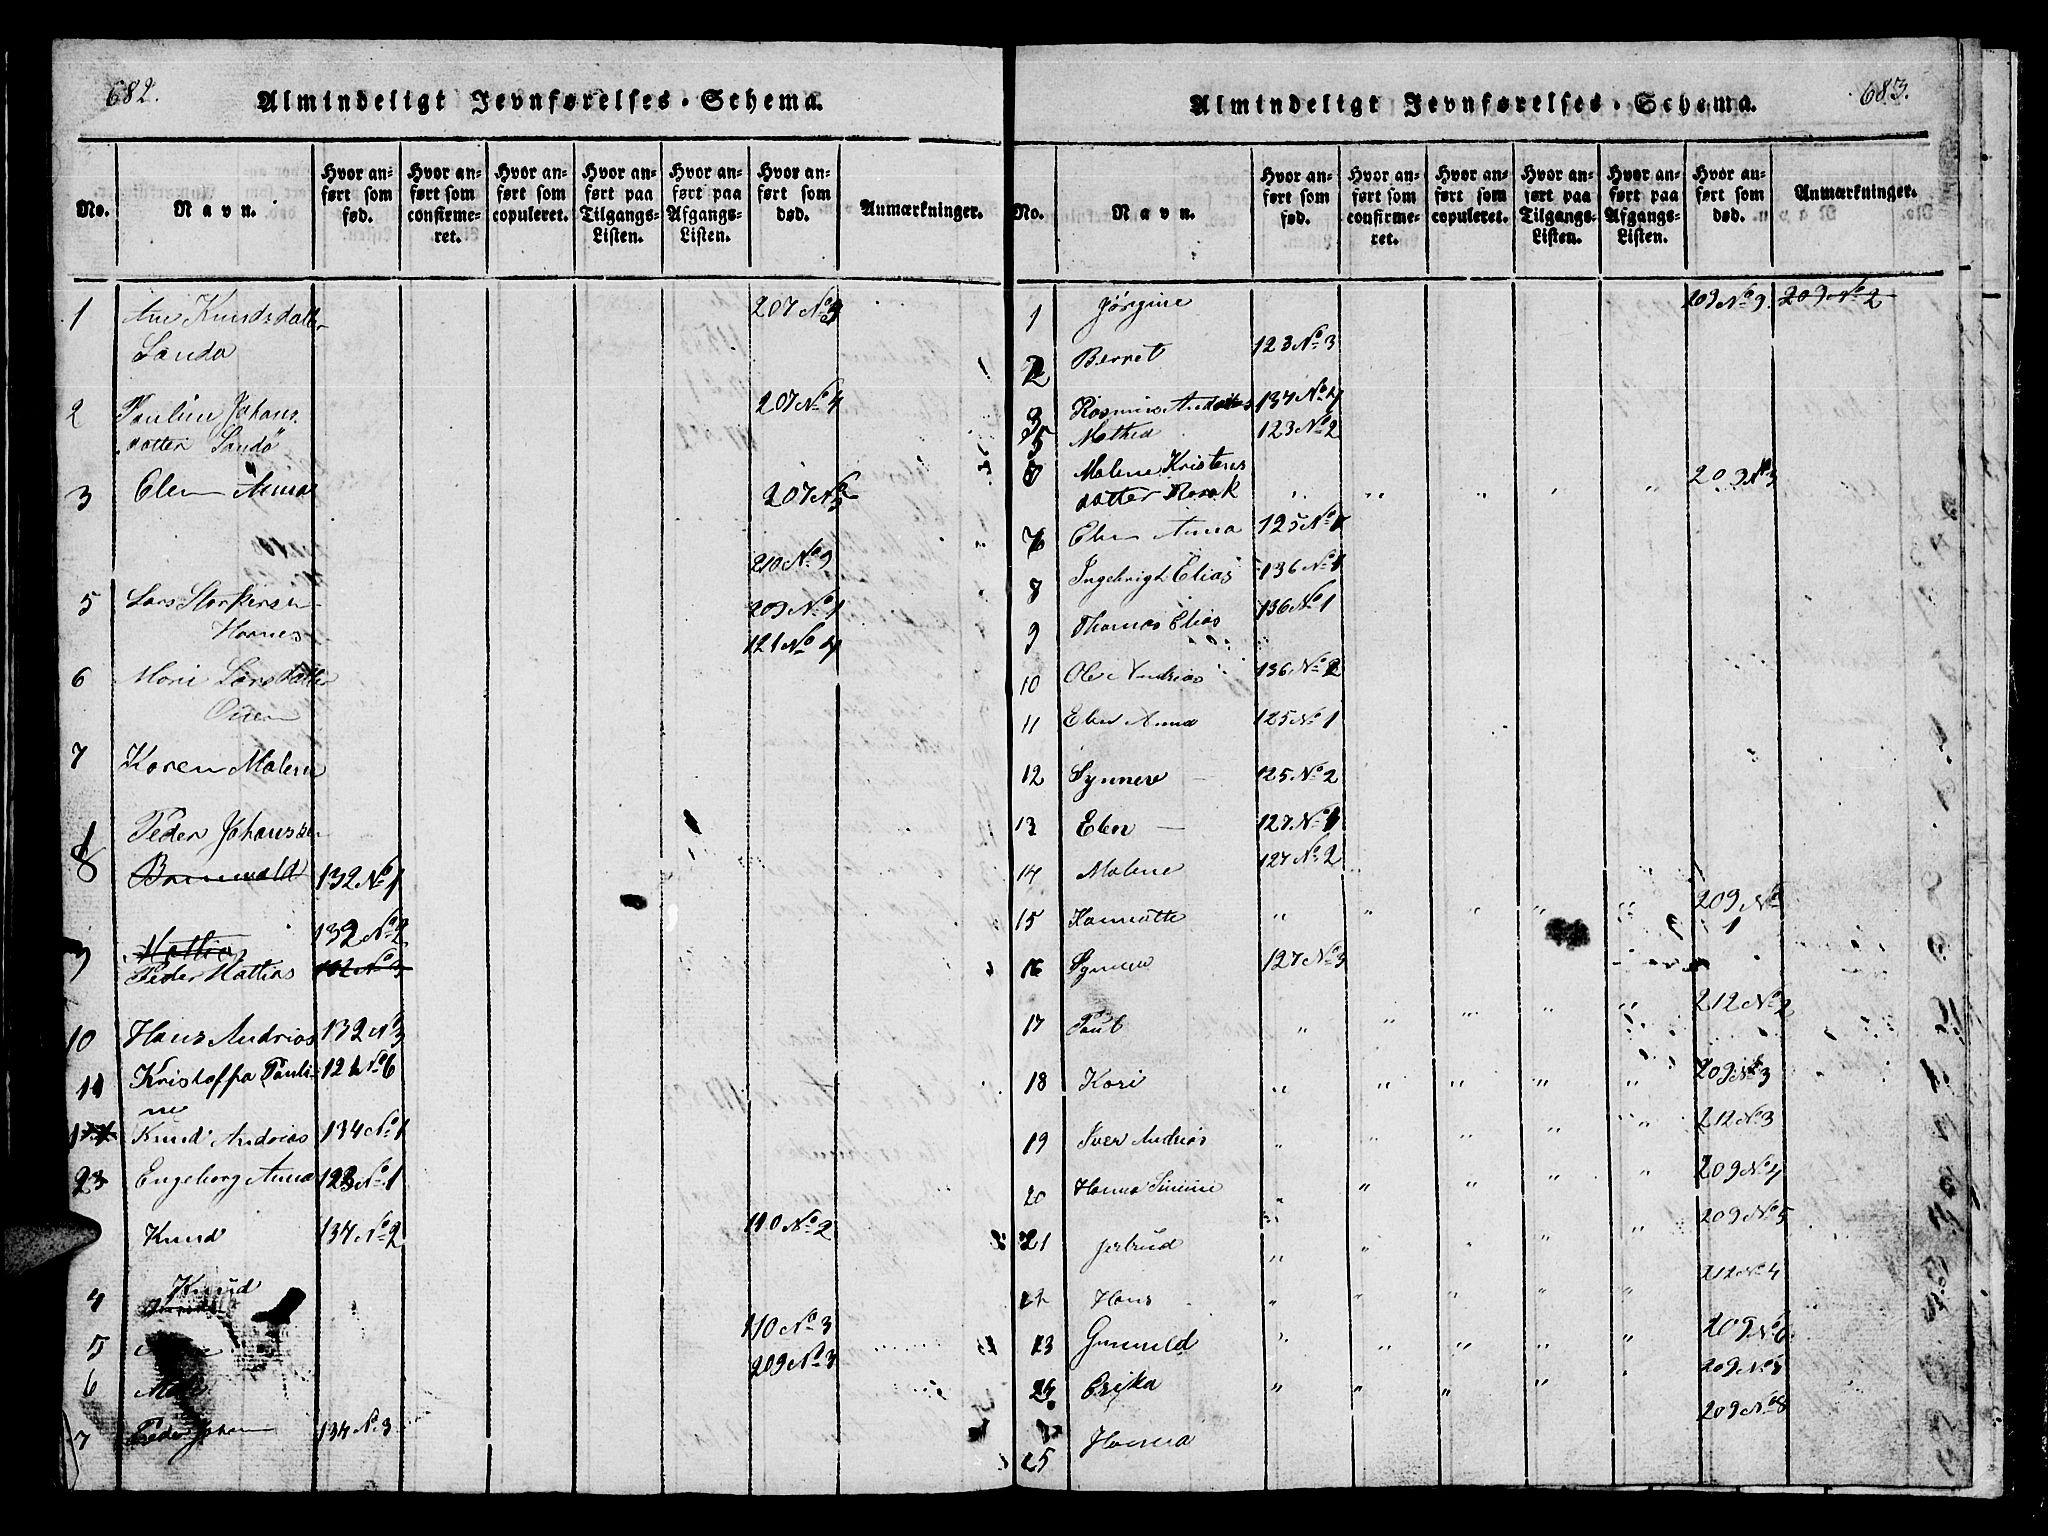 682.
Almindeligt Jevnførelses-Schema.
No.
Navn.
Hvor an-ført som fød.
Hvor an-ført som confirme-ret.
Hvor an-ført som copuleret.
Hvor an-ført paa Tilgangs-Listen.
Hvor an-ført paa Afgangs-Listen.
Hvor an-ført som død.
Anmærkninger.
1 Ane Knudsdatter 207 No 3
Sandø
2 Pauline Johans 207 No 4
datter Sandø
3 Elen Anna 207 No 5
210 No 3
5 Lars Storkersen 209 No 1
Hornes 121 No 4
6 Mari Larsdatter
7 Karen Malene
Peder Johanssen
8 132 No 1
Mathias 132 No 2
9 Peder Mattias 132 No 3
10 Hans Andrias 132 No 3
11 Kristoffa Pauli- 121 No 6
ne
Knud Andrias 134 No 1
Engeborg Anna 123 No 1
Knud 134 No 2 110 No 2
4 Knud
110 No 3
5
209 No 3
6
7 Peder Johan 134 No 3
683.
Almindeligt Jevnførelses-Schema.
No.
Navn.
Hvor an-ført som fød.
Hvor an-ført som confirme-ret.
Hvor an-ført som copuleret.
Hvor an-ført paa Tilgangs-Listen.
Hvor an-ført paa Afgangs-Listen.
Hvor an-ført som død.
Anmærkninger.
1 Jørgine 209 No 9. 209 No 2
2 Berret 123 No 3
3 Rasmus Andreas 134 No 4
5 Mathea 123 No 2
6 Malene Kristens
datter " " " " " 209 No 3
7 Elen Anna 125 No 1
8 Ingebrigt Elias 136 No 1
9 Thomas Elias 136 No 1
10 Ole Andrias 136 No 2
11 Elen Anna 125 No 1
12 Synnere 125 No 2
13 Elen 127 No 1
14 Malene 127 No 2
15 " " " " " 209 No 1
16 Synneve 127 No 3
17 Paul " " " " " 212 No 2
18 Kari " " " " " 209 No 3
19 Iver Andrias " " " " " 212 No 3
20 Hanna Simine " " " " " 209 No 4
21 Jertrud " " " " " 209 No 5
Hans " " " " " 212 No 4
Gunnild " " " " " 209 No 6
Erika " " " " " 209 No 7
25 Hanna 209 No 8